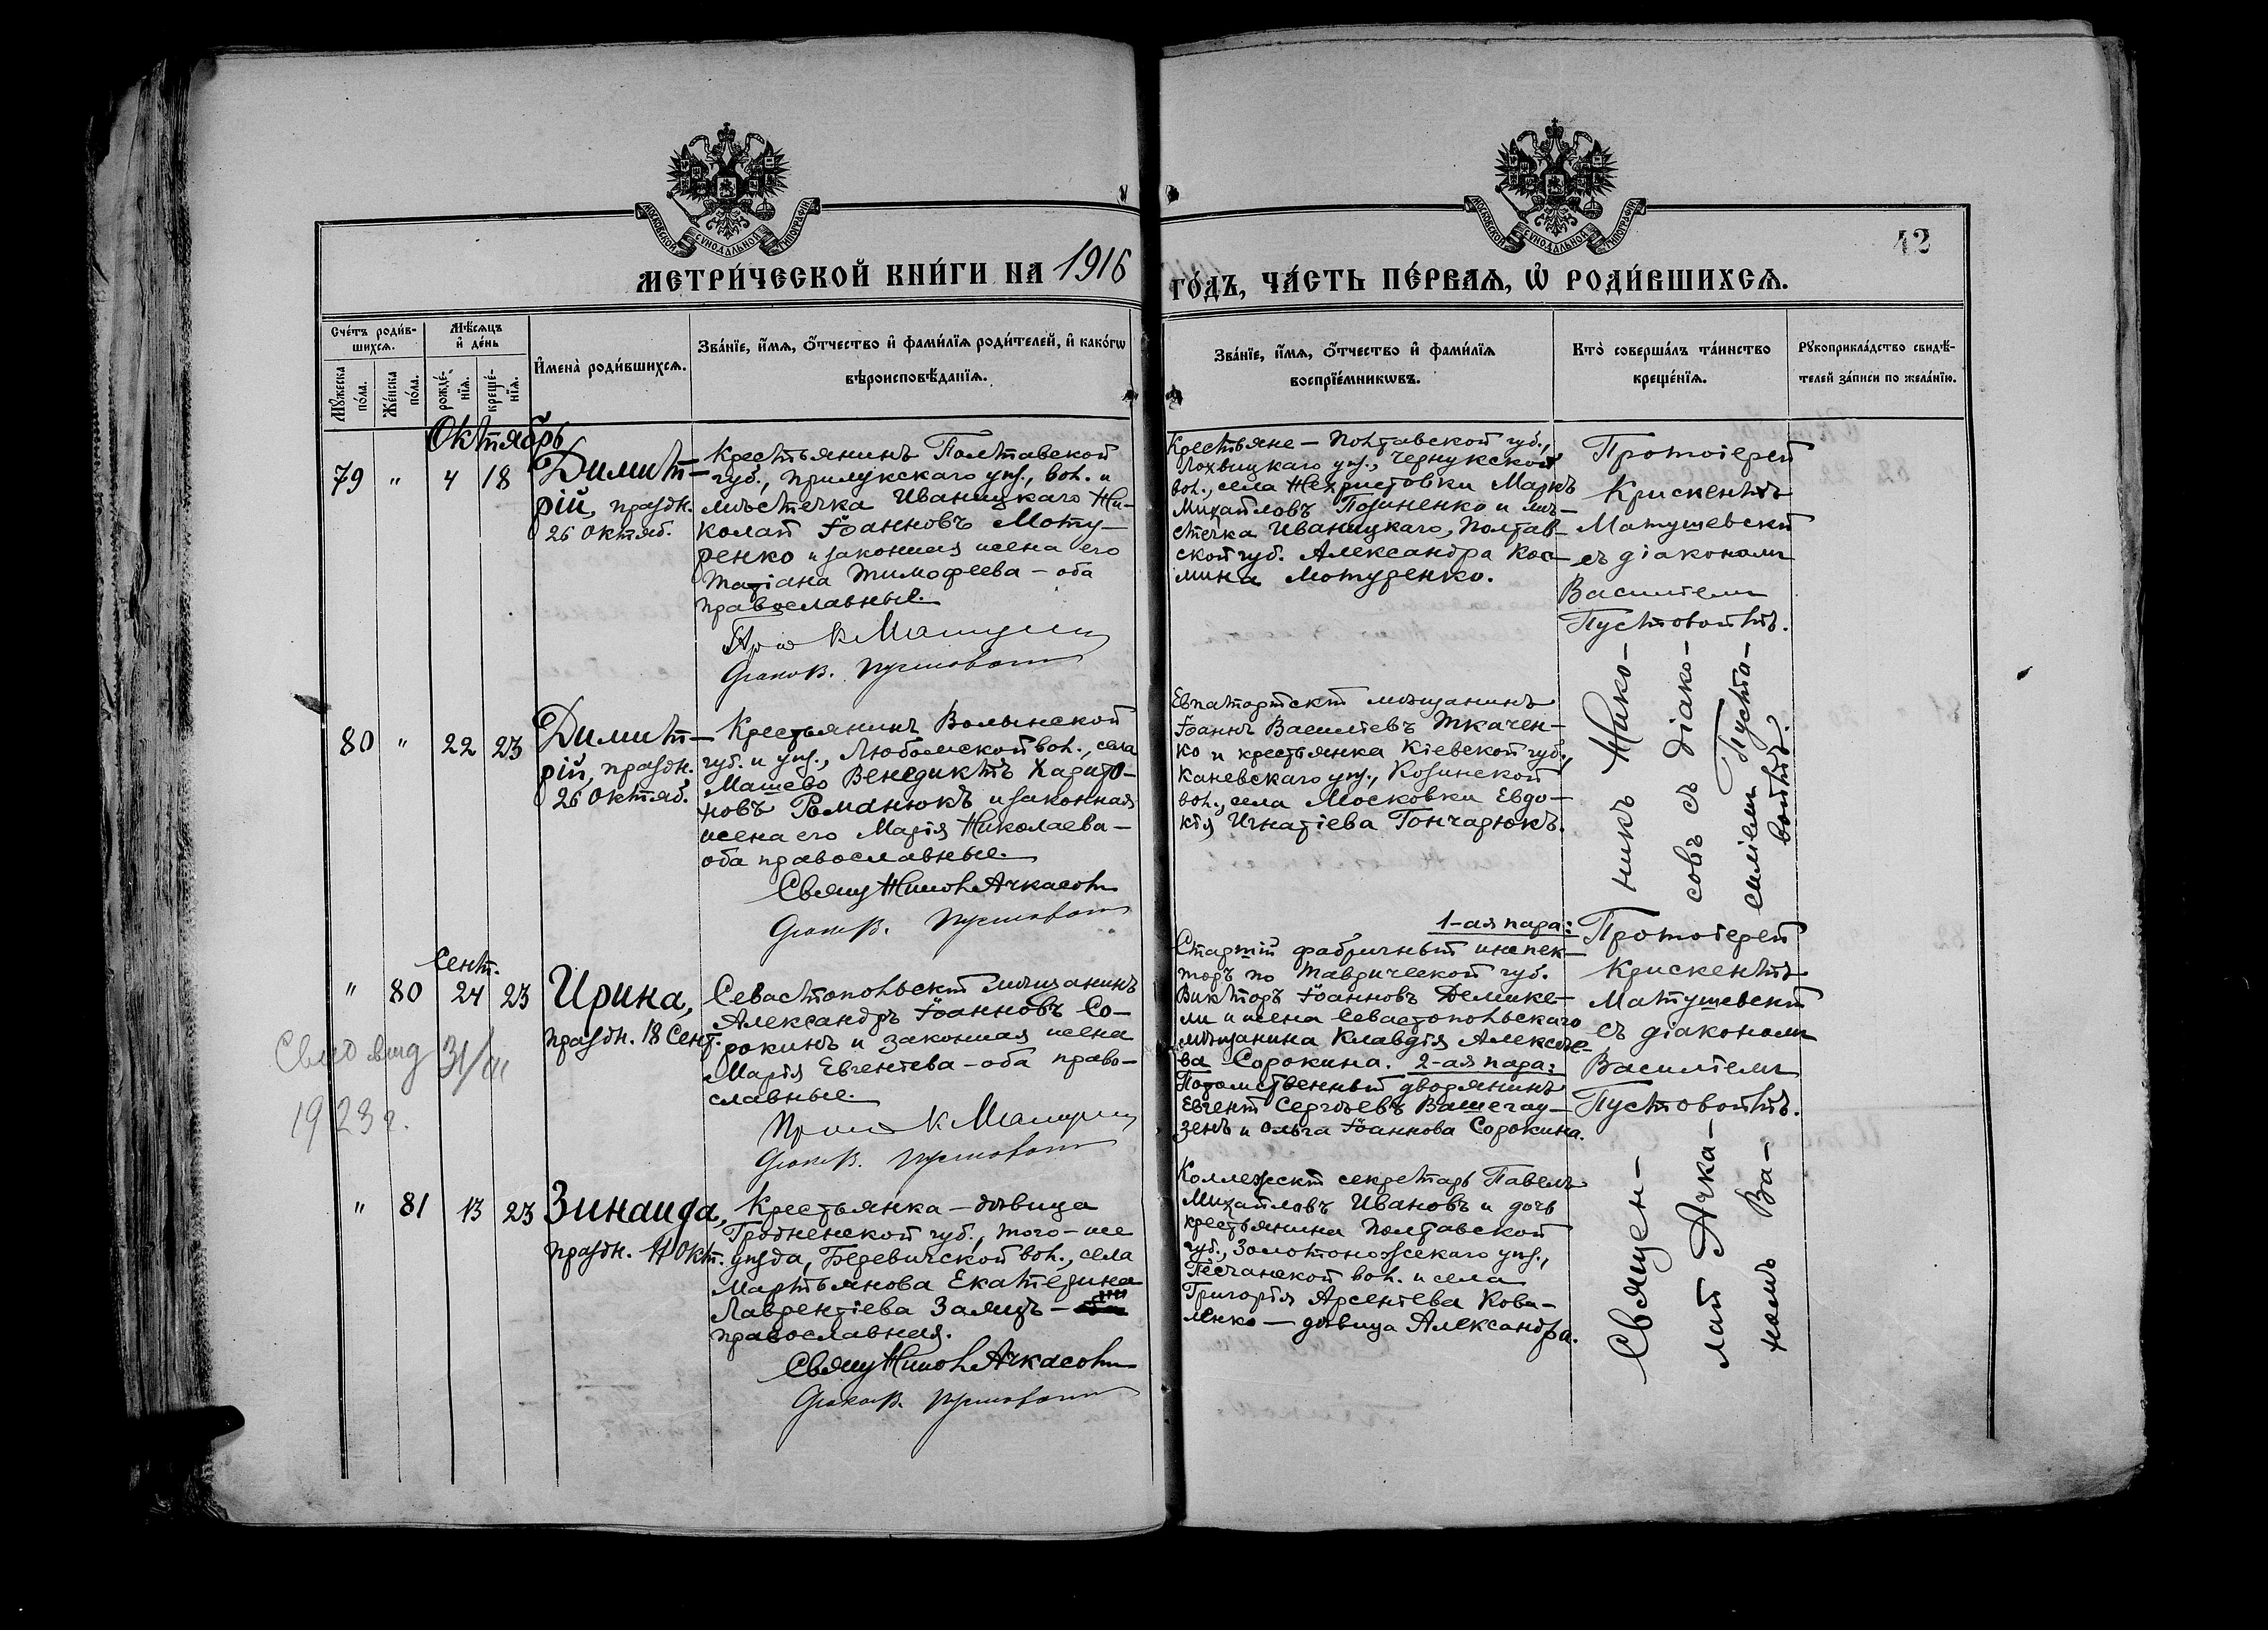 42
МЕТРИ́ЧЕСКОЙ КНИ́ГИ НА 1916
ГО́ДЪ, ЧА́СТЬ ПЕ́РВАѦ, Ѡ҆ РОДИ́ВШИХСѦ.
МОСКОВСКОЙ СѴНОДАЛЬНОЙ ТИПОГРАФІИ
МОСКОВСКОЙ СѴНОДАЛЬНОЙ ТИПОГРАФІИ
Сче́тъ роди́в-
шихсѧ.
Мꙋ́жеска по́ла.
Же́нска по́ла.
Мѣ́сѧцъ и҆ де́нь
рожде́-
нїѧ.
креще́-
нїѧ.
И҆мена̀ роди́вшихсѧ.
Зва́нїе, и҆́мѧ, ѻ҆́тчество и҆ фами́лїѧ роди́телей, и҆ како́гѡ
вѣроисповѣ́данїѧ.
Зва́нїе, и҆́мѧ, ѻ҆́тчество и҆ фами́лїѧ
воспрїе́мникѡвъ.
Кто̀ соверша́лъ та́инство
креще́нїѧ.
Рꙋкоприкла́дство свидѣ́-
телей за́писи по жела́нїю.
Октябрь
79 " 4 18
Димит-
рій, праздн.
26 Октяб.
Крестьянинъ Полтавской
губ., Прилукскаго уѣз., вол. и
мѣстечка Иваницкаго Ни-
колай Іоанновъ Моту-
ренко и законная жена его
Татіана Тимофеева - оба
православные.
Крестьяне - Полтавской губ.,
Лохвицкаго уѣз., Чернукской
вол., села Нехристовки Маркъ
Михайловъ Позиненко и мѣ-
стечка Иваницкаго, Полтав-
ской губ. Александра Кос-
мина Мотуренко.
Протоіерей
Крискентъ
Матушевскій
съ діакономъ
Василіемъ
Пустовойтъ.
80 " 22 23
Димит-
рій, праздн.
26 Октяб.
Крестьянинъ Волынской
губ. и уѣз., Любомской вол., села
Машево Венедиктъ Харито-
новъ Романюкъ и законная
жена его Марія Николаева -
оба православные.
Свящ Никол Ачкасовъ
Евпаторійскій мѣщанинъ
Іоаннъ Василіевъ Ткачен-
ко и крестьянка Кіевской губ.,
Каневскаго уѣз., Козинской
вол., села Московки Евдо-
кія Игнатіева Гончарюкъ.
Сент.
" 80 24 23
Ирина,
праздн. 18 Сент.
31/III
1923 г.
Севастопольскій мѣщанинъ
Александръ Іоанновъ Со-
рокинъ и законная жена
Марія Евгеніева - оба право-
славные.
1-ая пара:
Старшій фабричный инспек-
торъ по Таврической губ.
Викторъ Іоанновъ Демике-
ли и жена Севастопольскаго
мѣщанина Клавдія Алексѣе-
ва Сорокина. 2-ая пара:
Потомственный дворянинъ
Евгеній Сергѣевъ Вашегау-
зенъ и Ольга Іоаннова Сорокина.
Протоіерей
Крискентъ
Матушевскій
съ діакономъ
Василіемъ
Пустовойтъ.
" 81 13 23
Зинаида,
праздн. 11 Окт.
Крестьянка - дѣвица
Гродненской губ., того-же
уѣзда, Беревичской вол., села
Мартьянова Екатерина
Лаврентіева Заяцъ -
православная.
Свящ Никол Ачкасовъ
Коллежскій секретарь Павелъ
Михайловъ Ивановъ и дочь
крестьянина Полтавской
губ., Золотоножскаго уѣз.,
Песчанской вол. и села
Григорія Арсеніева Кова-
ленко - дѣвица Александра.
Священ-